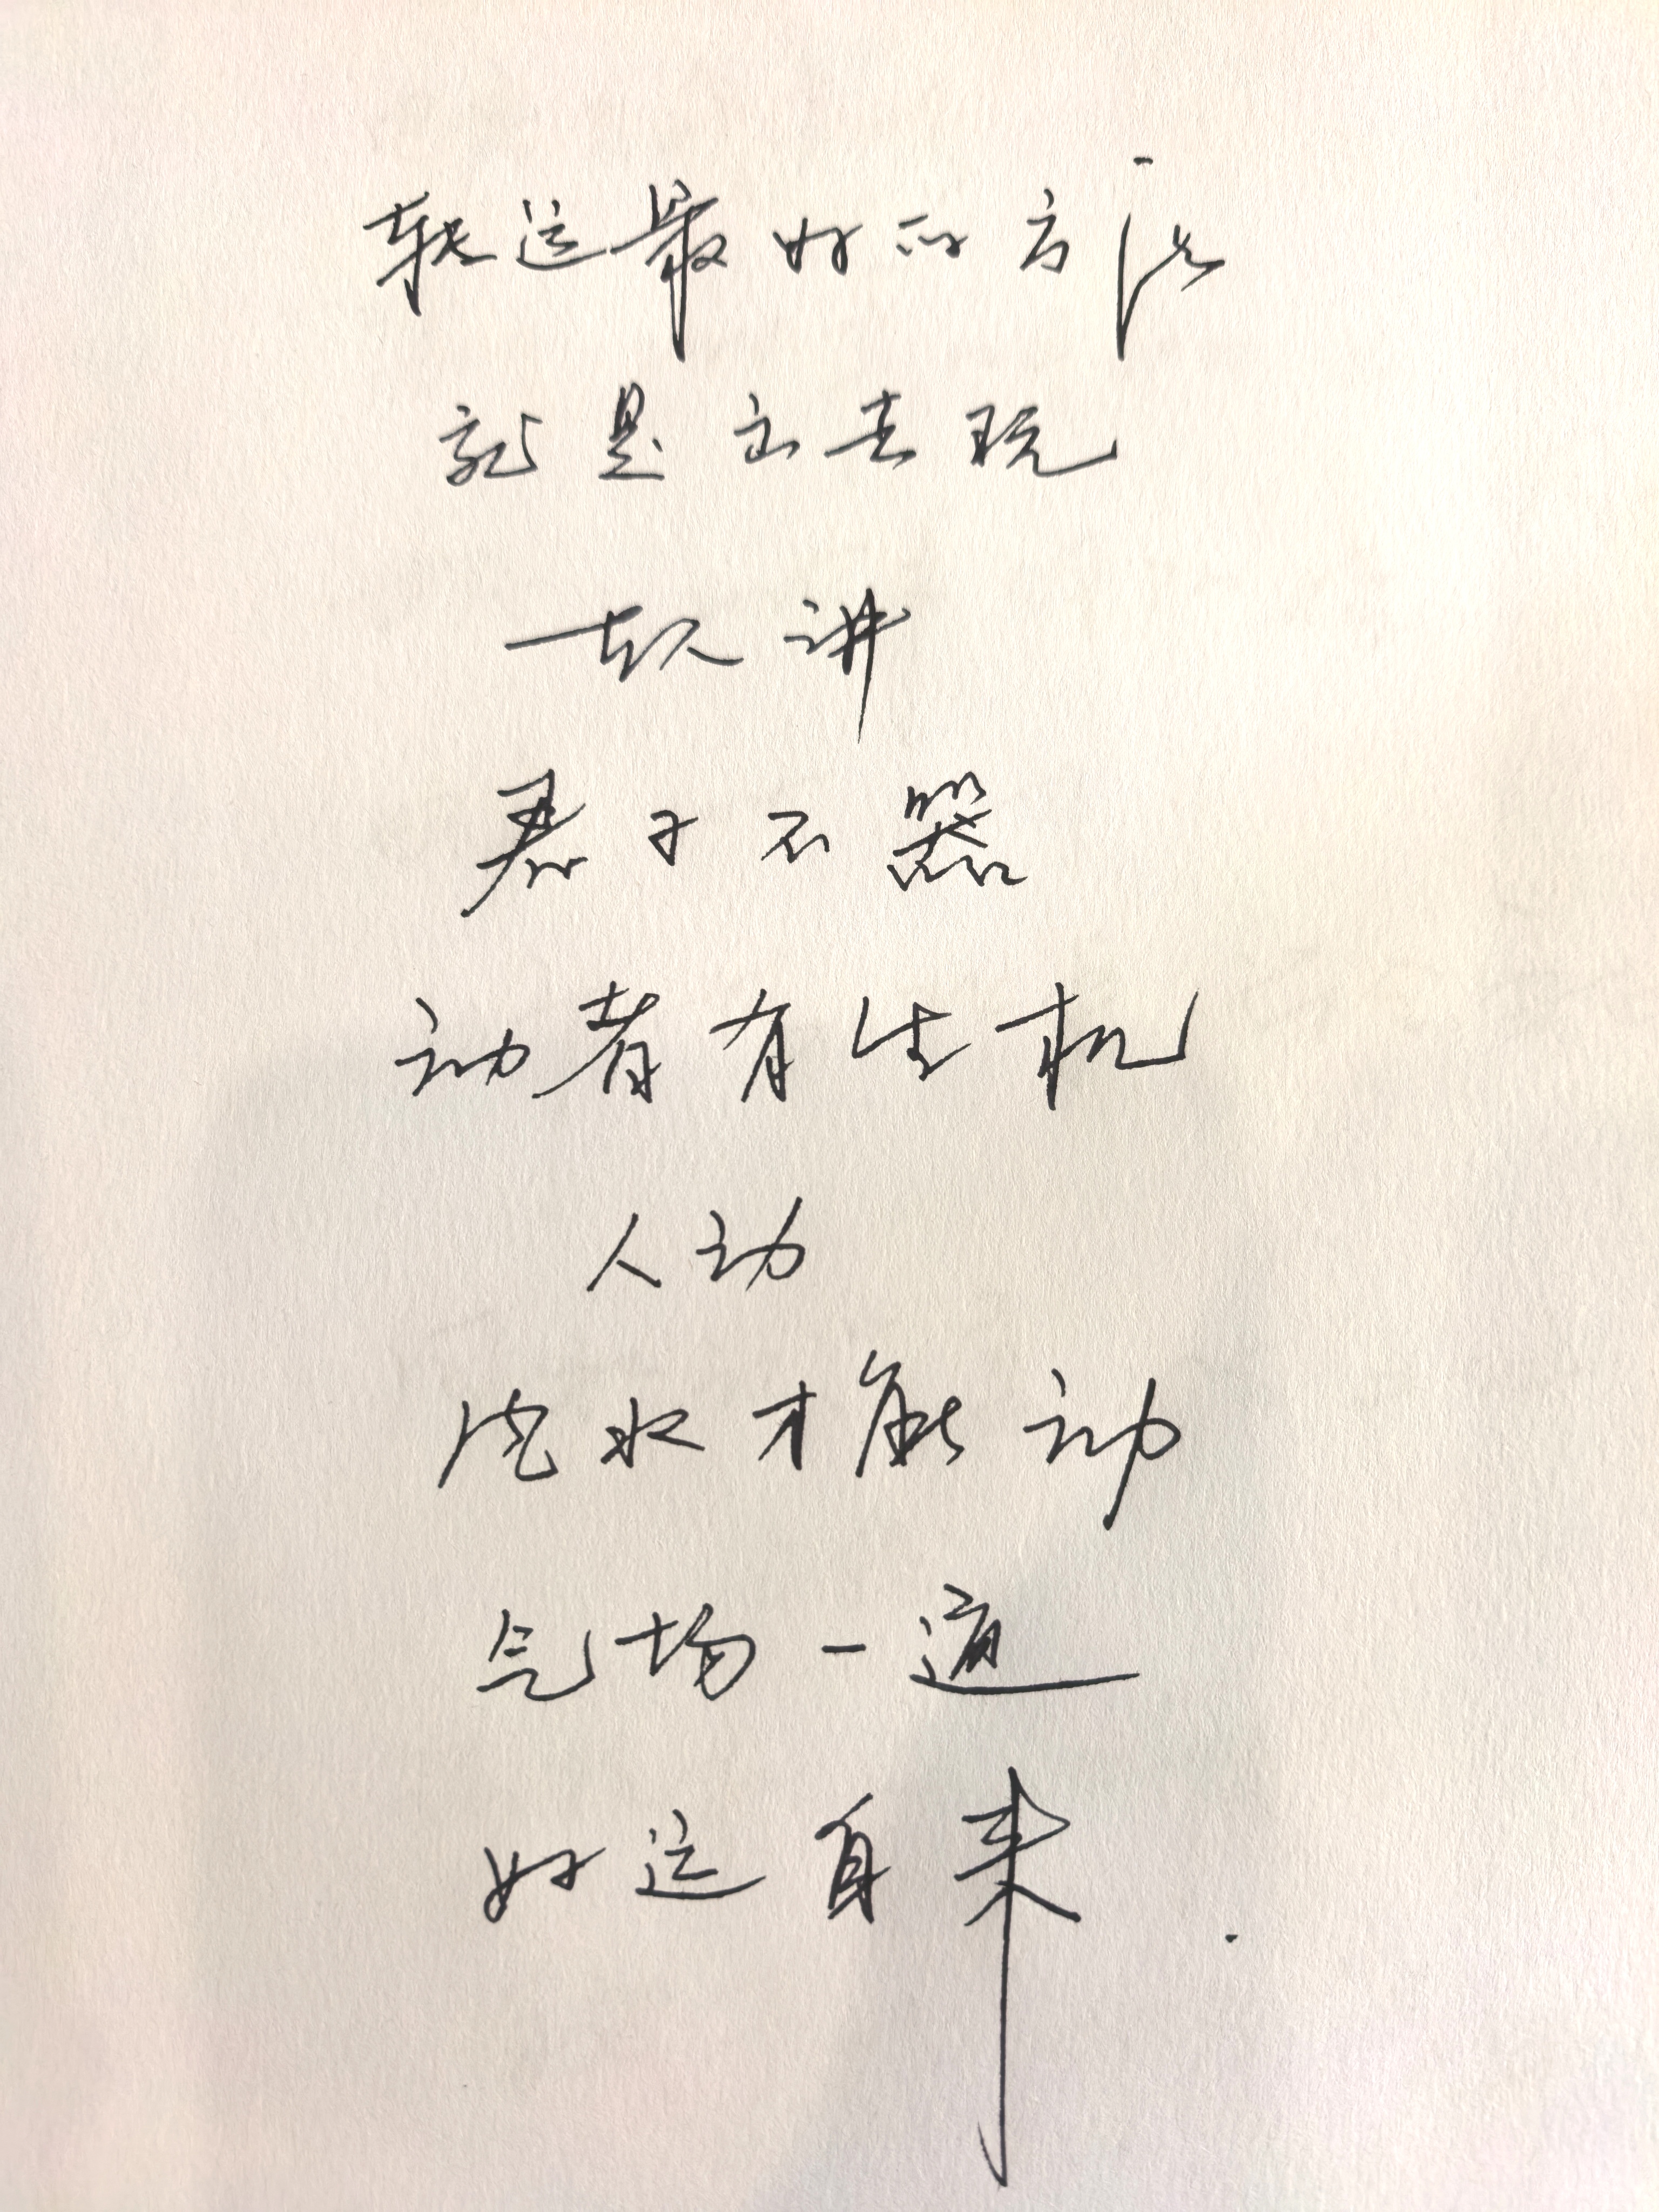 转运最好的方法
就是出去玩
古人讲
君子不器
动者有生机
人动
风水才能动
气场一通
好运自来.